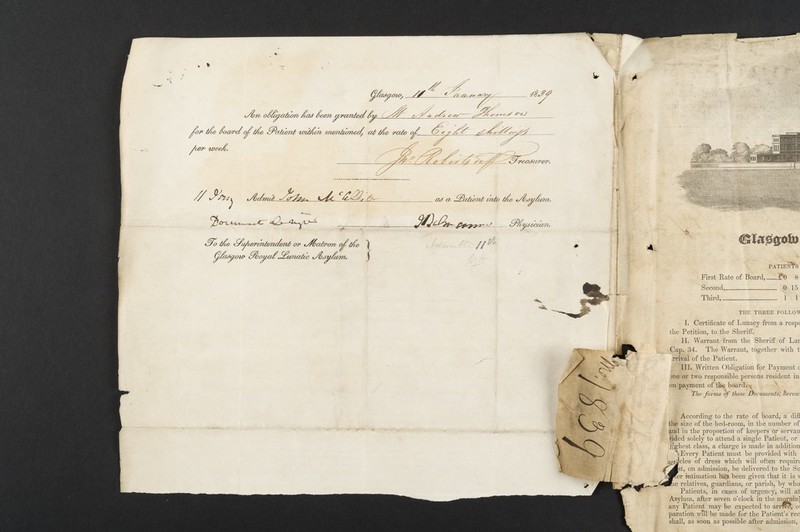 Glasgow, 11th January 1839
An obligation has been granted by Mr Andrew Thomson
for the board of the Patient within mentioned, at the rate of Eight shillings
per week.
Jno Robertson Treasurer.
11 Jany Admit John as a Patient into the Asylum.
Document Physician.
11th
To the Superintendent or Matron of the
Glasgow Royal Lunatic Asylum.
1839
Glasgow
PATIENTS
First Rate of Board, £0 8
Second, 0 15
Third, 1 1
THE THREE FOLLOW
I. Certificate of Lunacy from a respe
the Petition, to the Sheriff.
II. Warrant from the Sheriff of Lan
Cap. 34. The Warrant, together with t
arrival of the Patient.
III. Written Obligation for Payment o
one or two responsible persons resident in
on payment of the board.
The forms of these Documents,
According to the rate of board, a diff
the size of the bed-room, in the number of
and in the proportion of keepers or servan
vided solely to attend a single Patient, or
highest class, a charge is made in addition
Every Patient must be provided with
articles of dress which will often require
on admission, be delivered to the Su
after intimation has been given that it is
the relatives, guardians, or parish, by who
Patients, in cases of urgency, will at
Asylum, after seven o'clock in the morning
any Patient may be expected to arrive, o
paration will be made for the Patient's rec
shall, as soon as possible after admission,